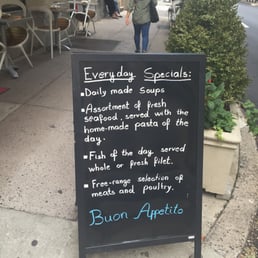 Everyday Specials:
▪Daily made Soups
▪Assortment of fresh
seafood, served with the
home-made pasta of the
day.
▪Fish of the day, served
whole or fresh filet.
▪Free-range selection of
meats and poultry.
Buon Appetito